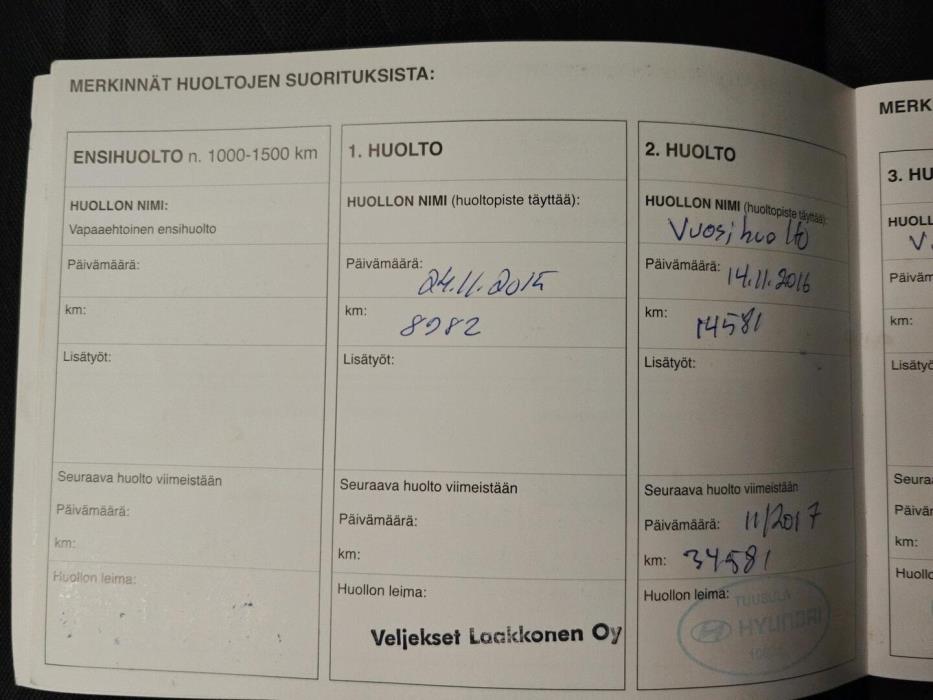 MERKINNÄT HUOLTOJEN SUORITUKSISTA:
ENSIHUOLTO n. 1000-1500 km
HUOLLON NIMI:
Vapaaehtoinen ensihuolto
Päivämäärä:
km:
Lisätyöt:
Seuraava huolto viimeistään
Päivämäärä:
km:
Huollon leima:
1. HUOLTO
HUOLLON NIMI (huoltopiste täyttää):
Päivämäärä: 24.11.2015
km: 8982
Lisätyöt:
Seuraava huolto viimeistään
Päivämäärä:
km:
Huollon leima:
Veljekset Laakkonen Oy
2. HUOLTO
HUOLLON NIMI (huoltopiste täyttää):
Vuosihuolto
Päivämäärä: 14.11.2016
km: 14581
Lisätyöt:
Seuraava huolto viimeistään
Päivämäärä: 11/2017
km: 34581
Huollon leima:
TUUSULA
HYUNDAI
MERK
3. HU
HUOLL
V
Päiväm
km:
Lisätyö
Seura
Päivär
km:
Huollo